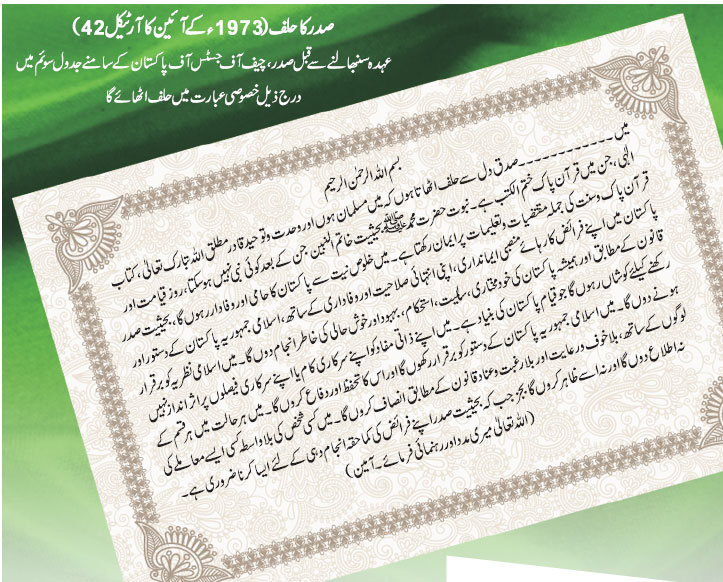 صدر کا حلف (1973ء کے آئین کا آرٹیکل 42)
عہدہ سنبھالنے سے قبل صدر، چیف آف جسٹس آف پاکستان کے سامنے جدول سوئم میں
درج ذیل خصوصی عبارت میں حلف اٹھائے گا
بسم اللہ الرحمٰن الرحیم
میں ـ ـ ـ ـ ـ ـ ـ ـ ـ ـ ـ ـ صدق دل سے حلف اٹھاتا ہوں کہ میں مسلمان ہوں اور وحدت و توحید قادر مطلق اللہ تبارک تعالیٰ، کتاب
الٰہی، جن میں قرآن پاک ختم الکتب ہے۔ نبوت حضرت محمد ﷺ بحیثیت خاتم النبین جن کے بعد کوئی نبی نہیں ہو سکتا، روز قیامت اور
قرآن پاک و سنت کی جملہ مقتضیات و تعلیمات پر ایمان رکھتا ہے۔ میں خلوص نیت سے پاکستان کا حامی اور وفادار رہوں گا، بحیثیت صدر
پاکستان میں اپنے فرائض کارہائے منصبی ایمانداری، اپنی انتہائی صلاحیت اور وفاداری کے ساتھ، اسلامی جمہوریہ پاکستان کے دستور اور
قانون کے مطابق اور ہمیشہ پاکستان کی خود مختاری، سالمیت، استحکام، بہبود اور خوش حالی کی خاطر انجام دوں گا۔ میں اسلامی نظریہ کو برقرار
رکھنے کیلئے کوشاں رہوں گا جو قیام پاکستان کی بنیاد ہے۔ میں اپنے ذاتی مفاد کو اپنے سرکاری کام یا اپنے سرکاری فیصلوں پر اثر انداز نہیں
ہونے دوں گا۔ میں اسلامی جمہوریہ پاکستان کے دستور کو برقرار رکھوں گا اور اس کا تحفظ اور دفاع کروں گا۔ میں ہر حالت میں ہر قسم کے
لوگوں کے ساتھ، بلا خوف و رعایت اور بلا رغبت و عناد قانون کے مطابق انصاف کروں گا۔ میں کسی شخص کی بلاواسطہ کسی ایسے معاملے کی
نہ اطلاع دوں گا اور نہ اسے ظاہر کروں گا بجز جب کہ بحیثیت صدر اپنے فرائض کی کماحقہ انجام دہی کے لئے ایسا کرنا ضروری ہے۔
(اللہ تعالیٰ میری مدد اور رہنمائی فرمائے۔ آمین)